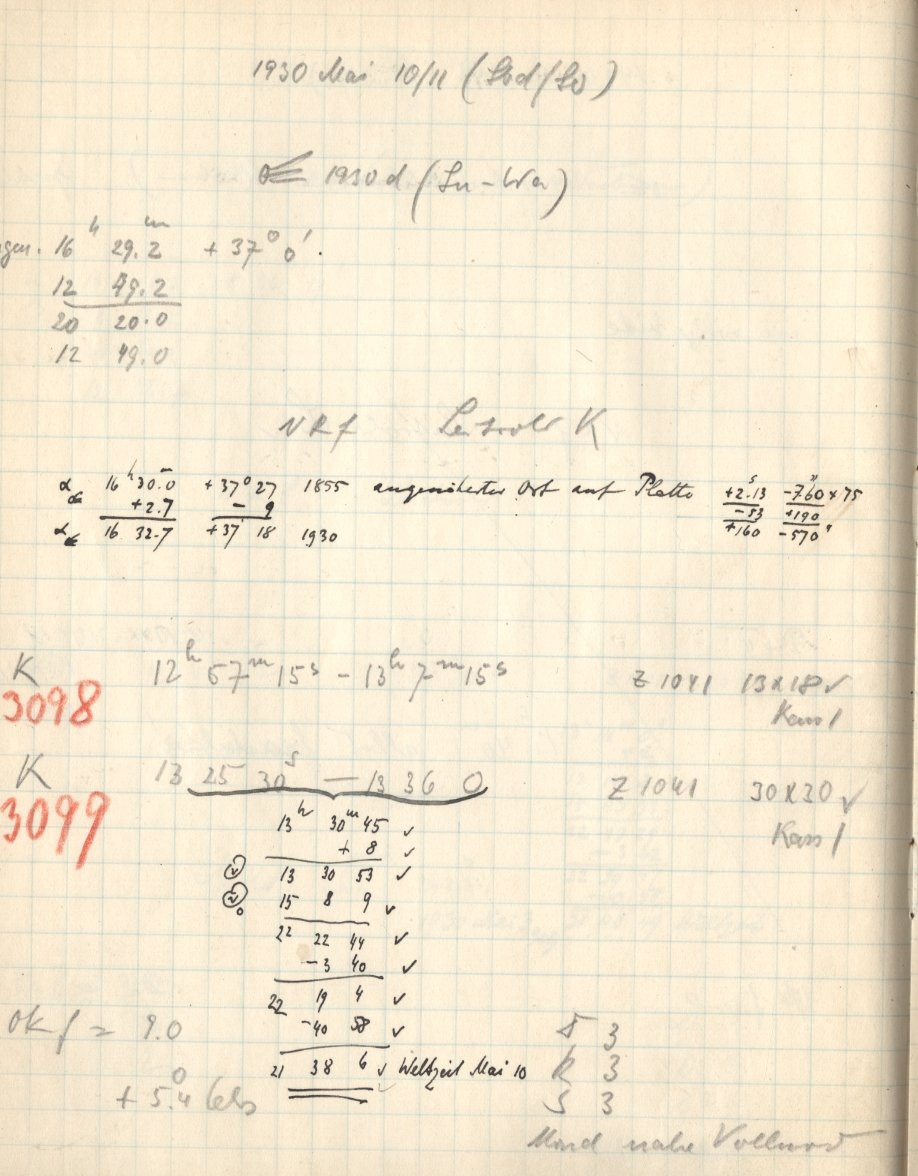 1930 Mai 10/11 (
☄ 1930 d (
16ʰ 29.ᵐ2 + 37° 0'.
12 49.2
20 20.0
12 49.0
NRf K
α☄ 16ʰ 30.ᵐ0 +37° 27 1855 angenäherter Ort auf Platte +2.ˢ13 -7."60 × 75
+2.7 - 9 -53 +190
α☄ 16 32.7 +37 18 1930 +160 -570"
K
3098 12ʰ 57ᵐ 15ˢ - 13ʰ 7ᵐ 15ˢ Z 1041 13×18 ✓
K
3099 13 25 30ˢ — 13 36 0 Z 1041 30×30 ✓
13ʰ 30ᵐ 45 ✓
+ 8 ✓
13 30 53 ✓
15 8 9 ✓
22 22 44 ✓
-3 40 ✓
22 19 4 ✓
-40 58 ✓
21 38 6 ✓ Weltzeit Mai 10
OK f = 9.0
+ 5.°4 Cels
3
R 3
S 3
Mond nahe Vollmond